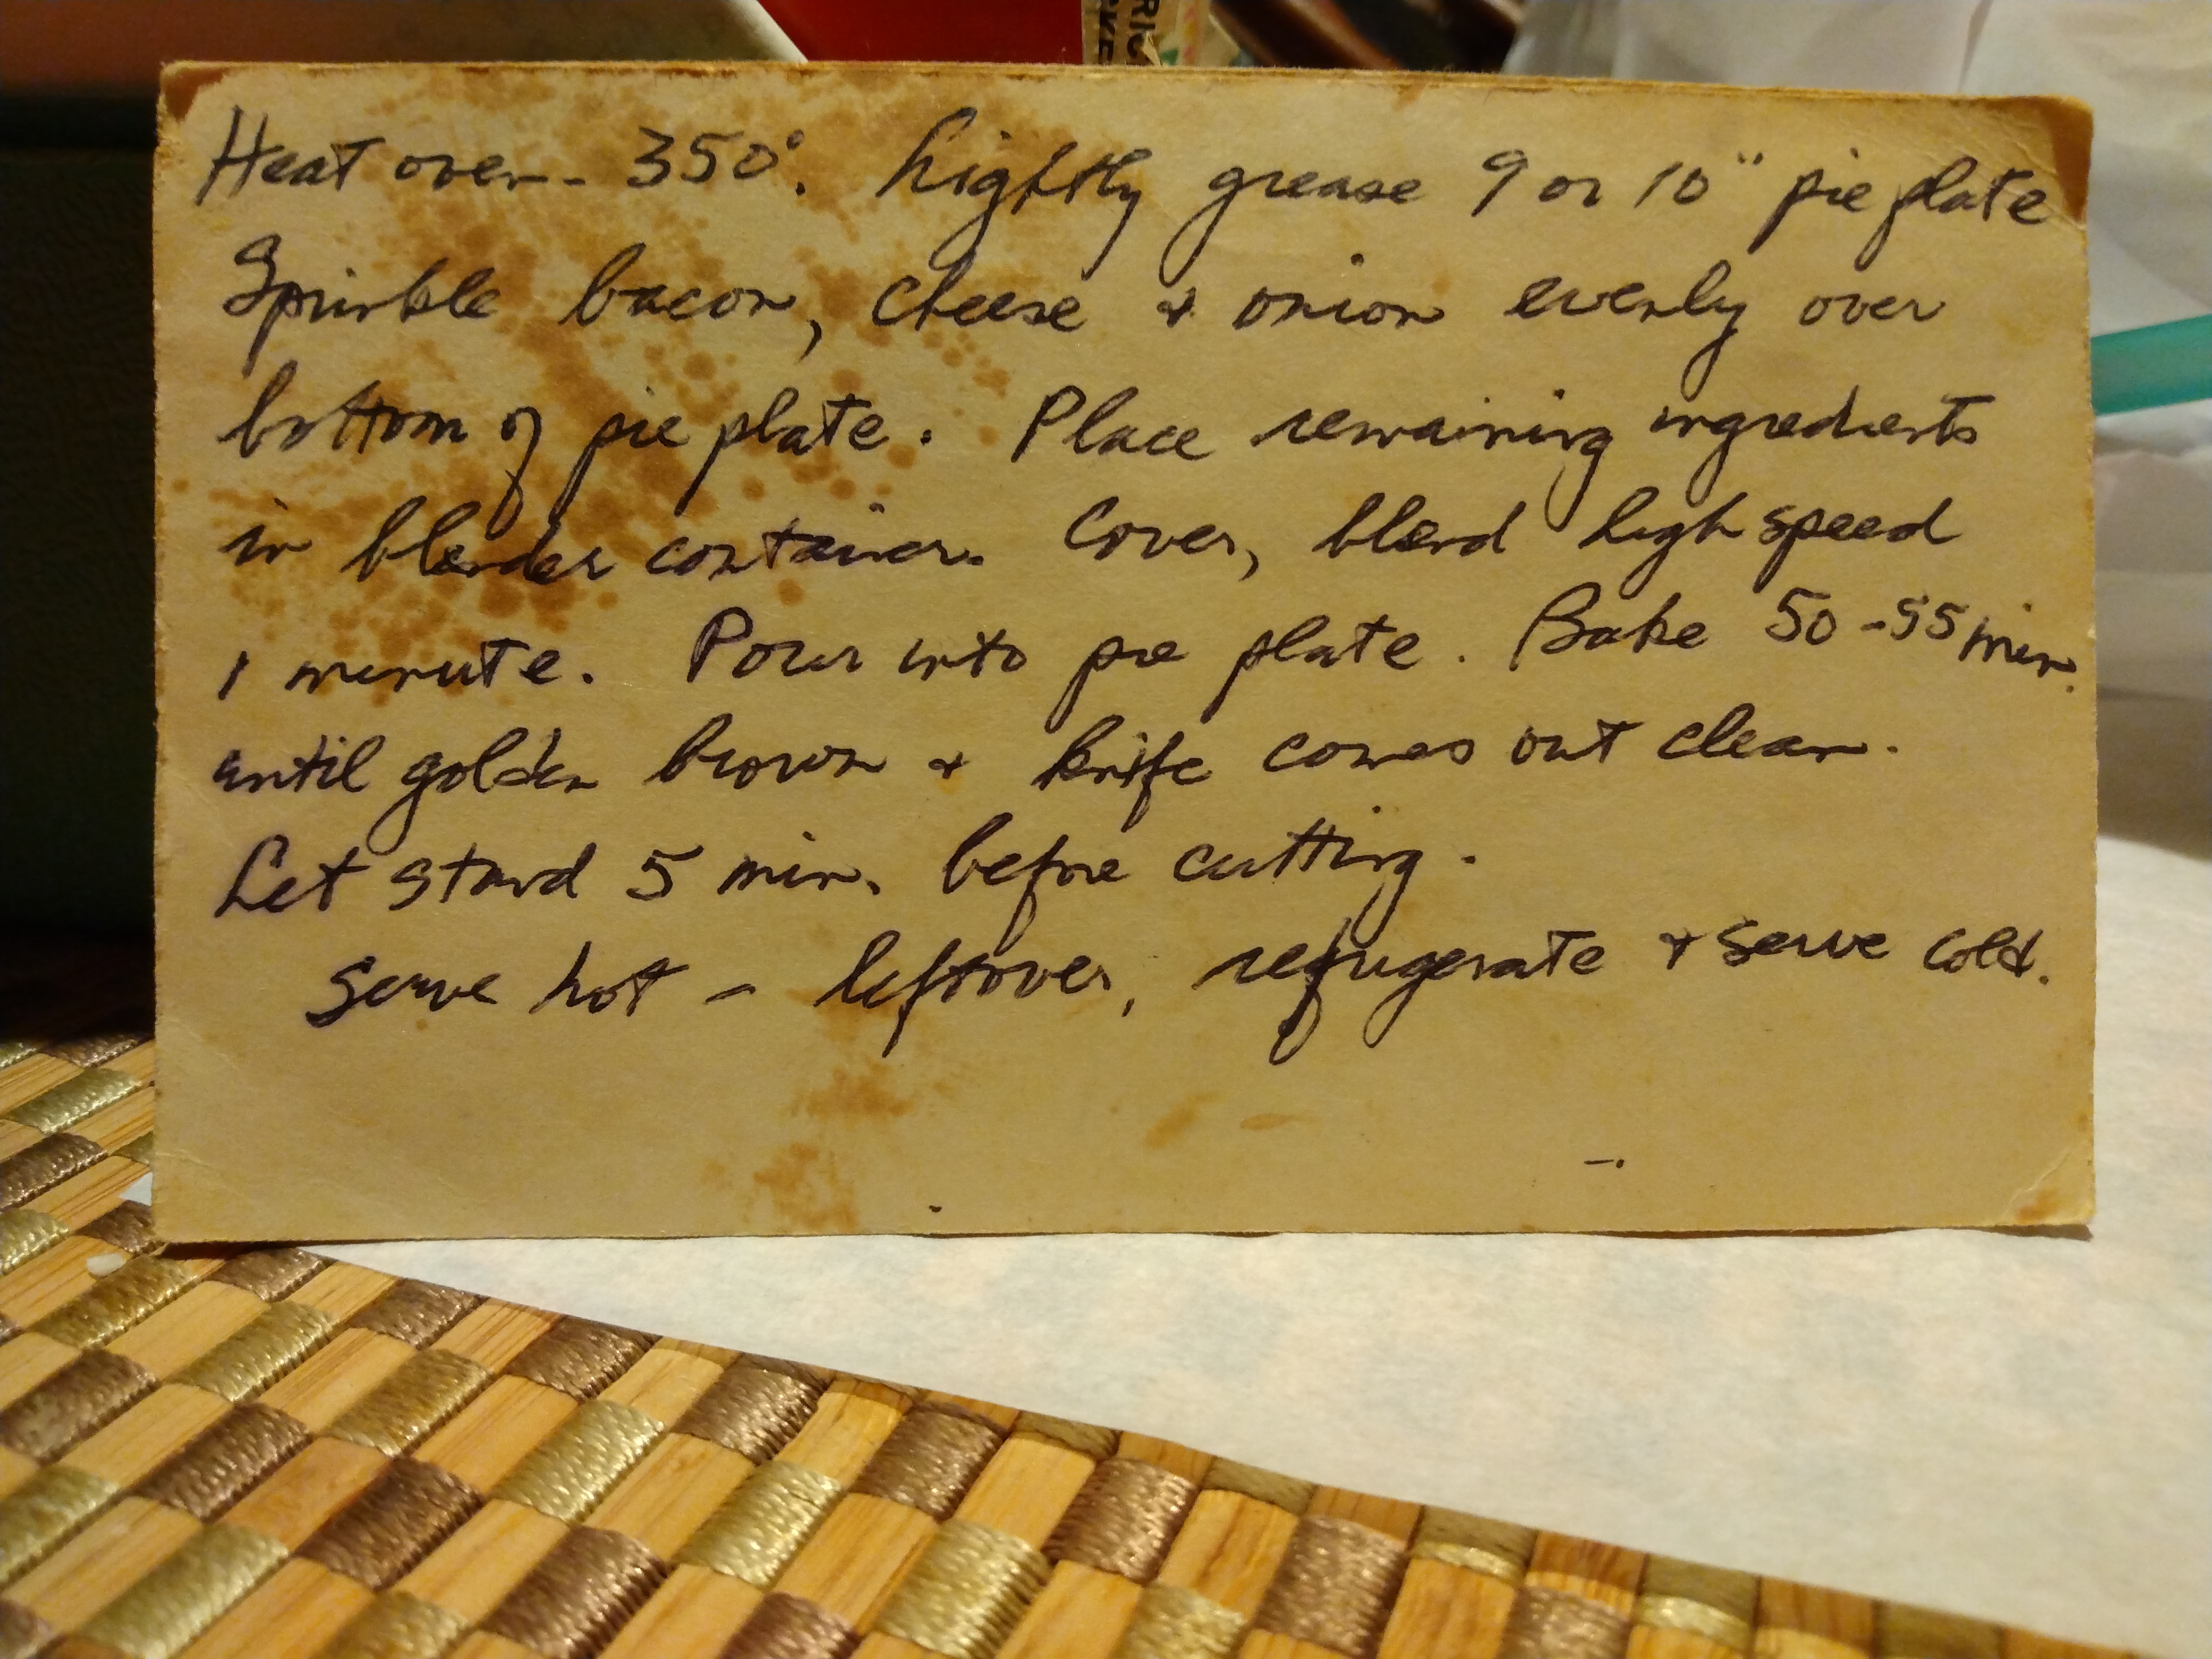 RIG
RKE
Heat oven - 350°. Lightly grease 9 or 10" pie plate
Sprinkle bacon, cheese & onion evenly over
bottom of pie plate. Place remaining ingredients
in blender container. Cover, blend high speed
1 minute. Pour into pie plate. Bake 50-55 min.
until golden brown & knife comes out clean.
Let stand 5 min. before cutting.
Serve hot - leftover, refrigerate & serve cold.